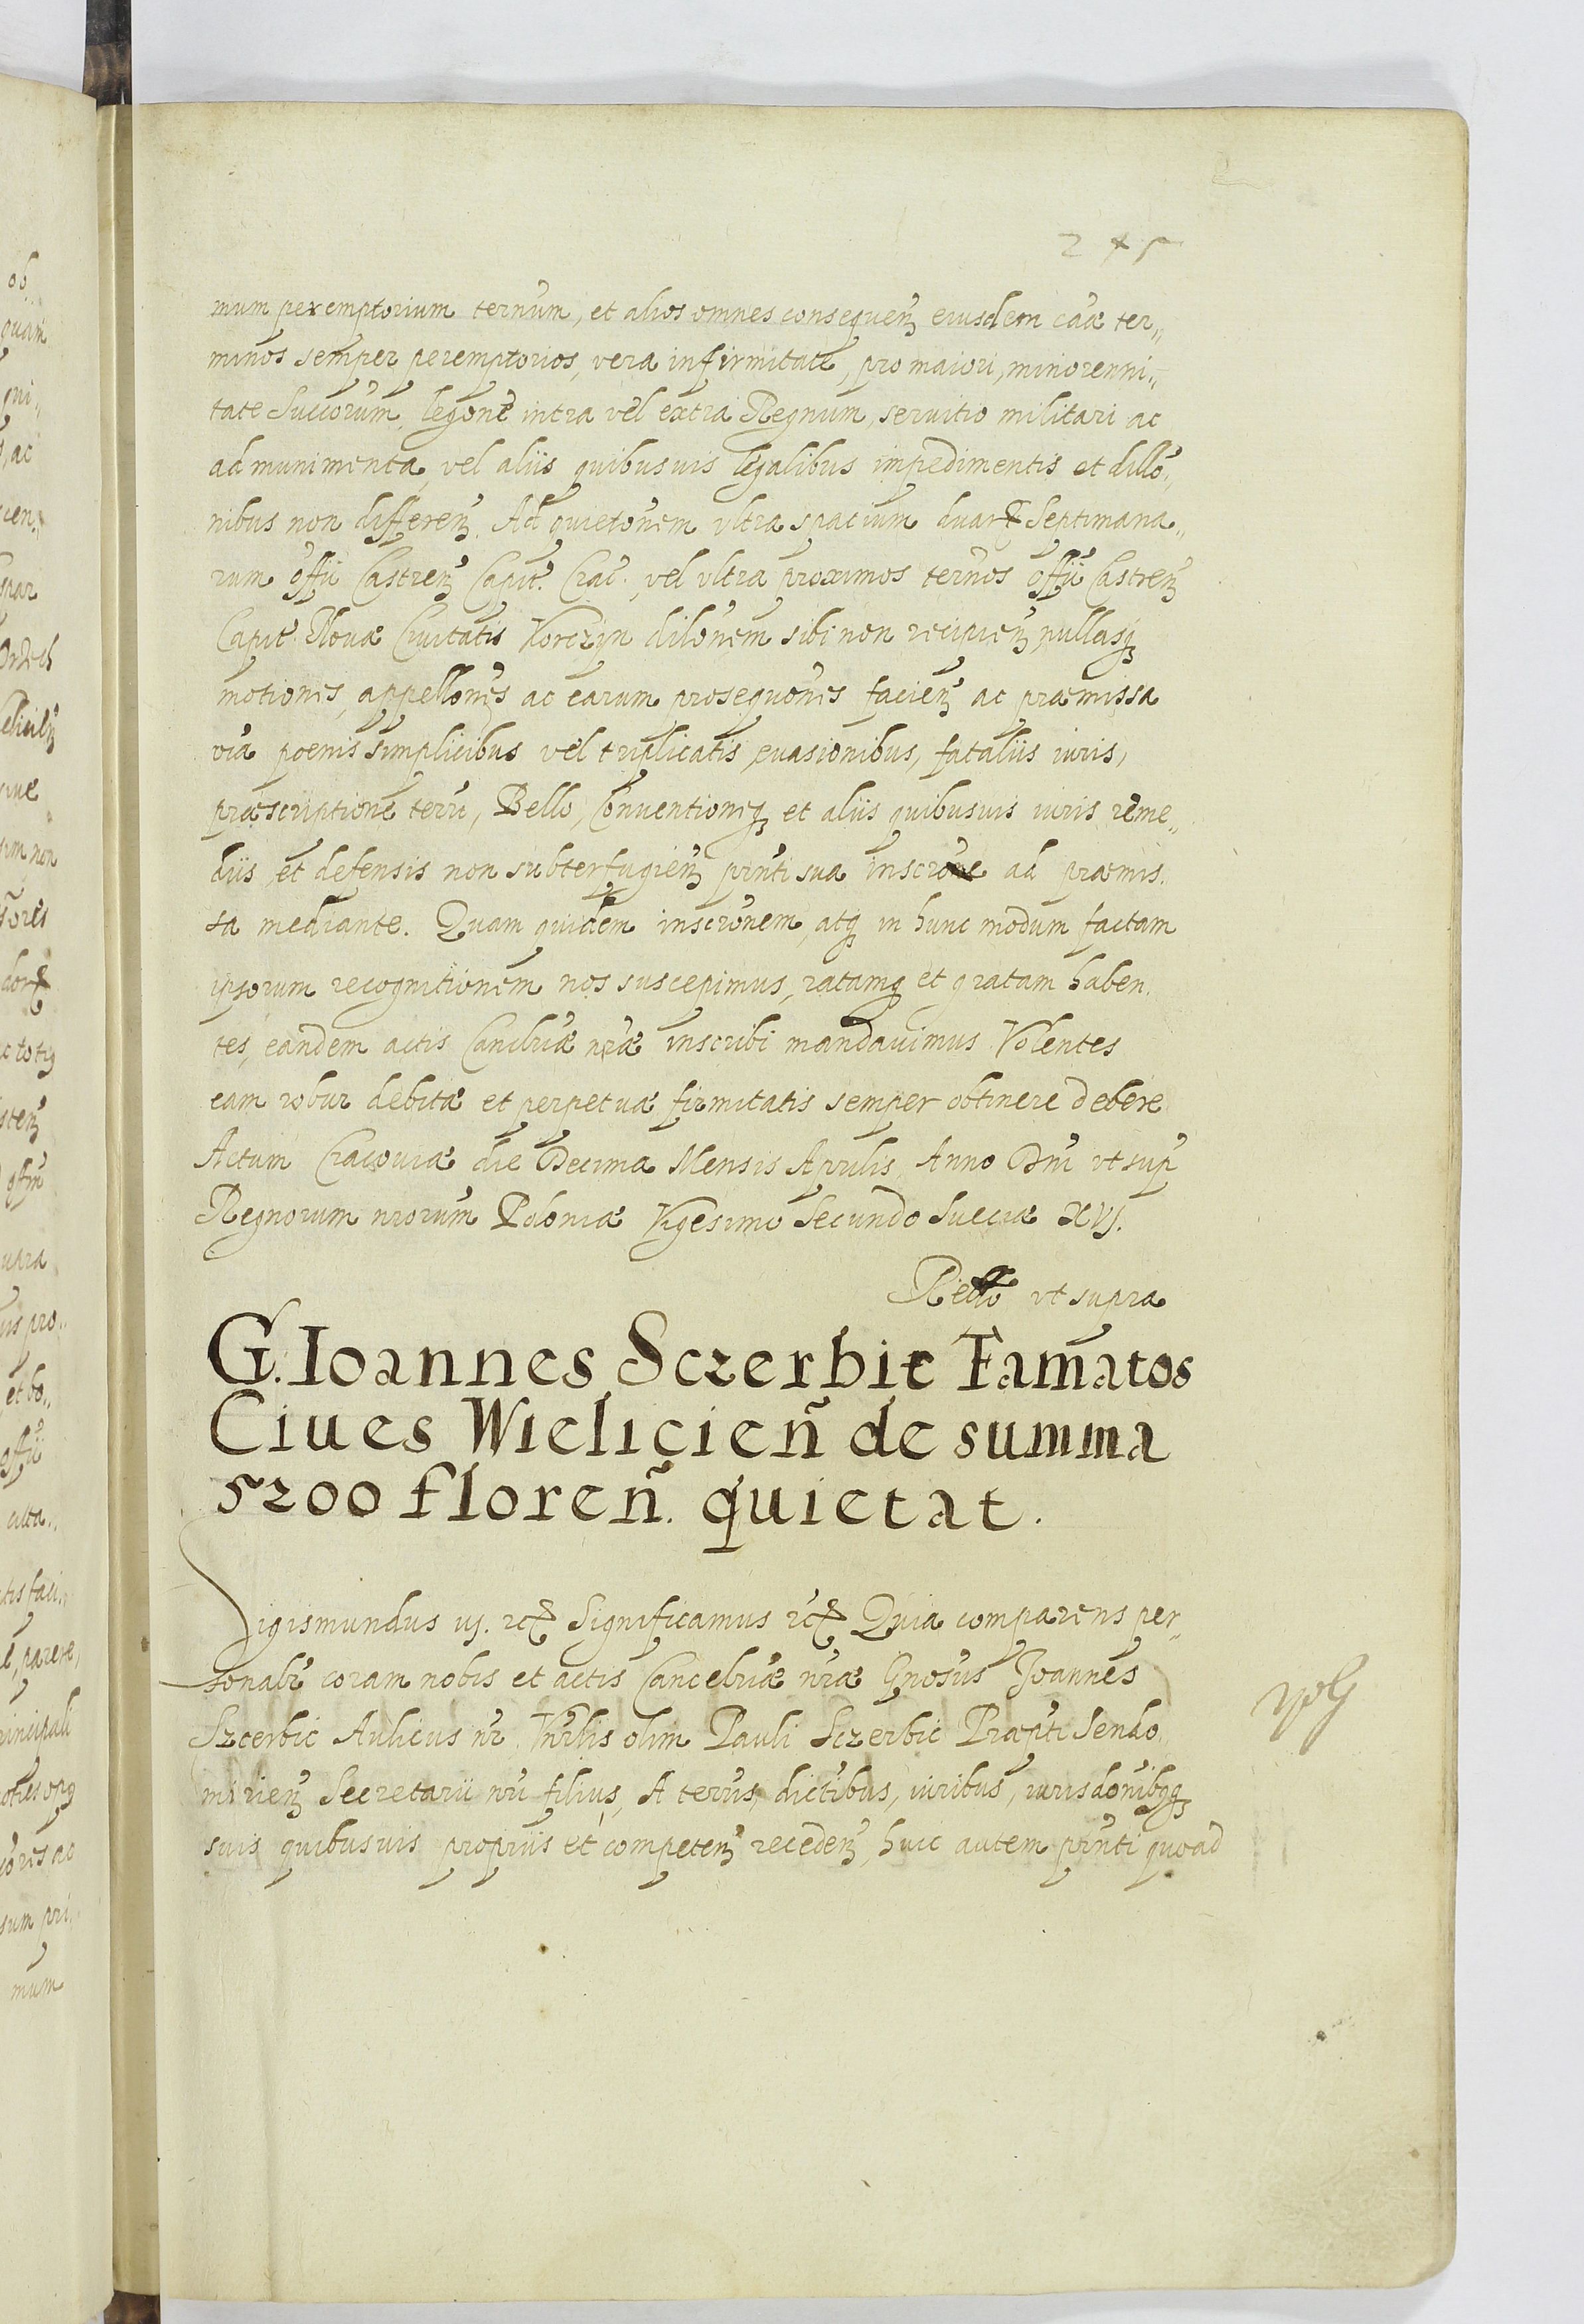 mum peremptorium ternum, et alios omnes consequen̄ eiusdem cāæ ter„
minos semper peremptorios, vera infirmitate, pro maiori, minorenni„
tate Succorum, legōne intra vel extra Regnum, seruitio militari ac
ad munimenta, vel aliis quibusuis legalibus impedimentis et dillō„
nibus non differen̄. Ad quietōnem vltra spacium duarꝝ Septimana„
rum offii Castren̄ Capit. Crac. vel vltra proximos ternos offii Castren̄
Capit. Nouæ Ciuitatis Korczyn dilōnem sibi non recipien̄, nullasqꝫ
motiones, appellōnes ac earum prosequōnes facien̄ ac præmissa
via poenis simplicibus vel triplicatis, euasionibus, fataliis iuris,
præscriptione terrī, Bello, Conuentioneqꝫ et aliis quibusuis iuris reme„
diis et defensis non subterfugien̄ pn̄ti sua inscrōne ad præmis.
sa mediante. Quam quidem inscrōnem, atqꝫ in hunc modum factam
ipsorum recognitionem nos suscepimus, ratamqꝫ et gratam haben.
tes, eandem actis Cancelriæ nr̄æ inscribi mandauimus. Volentes
eam robur debitæ et perpetuæ firmitatis semper obtinere debere
Actum Cracouiæ die Decima Mensis Aprilis, Anno Dn̄i vt sup̄
Regnorum nrorum Poloniæ Vigesimo Secundo Sueciæ XVJ.
Rello vt supra
G. Ioannes Sczerbic Famatos
Ciues Wielicien̄ de summa
5200 floren̄. quietat.
Sigismundus iij. rcꝫ Significamus rcꝫ Quia comparens per„
sonalr̄ coram nobis et actis Cancelriæ nr̄æ Gnosus Joannes
Szcerbic Aulicus nr̄ Vn̄rlis olim Pauli Sczerbic Præpti Sendo.
mirien̄ Secretarii nr̄i filius, A terris, dictibus, iuribus, iurisdōnibqꝫ
suis quibusuis propriis et competen̄ receden̄, huic autem pn̄ti quoad